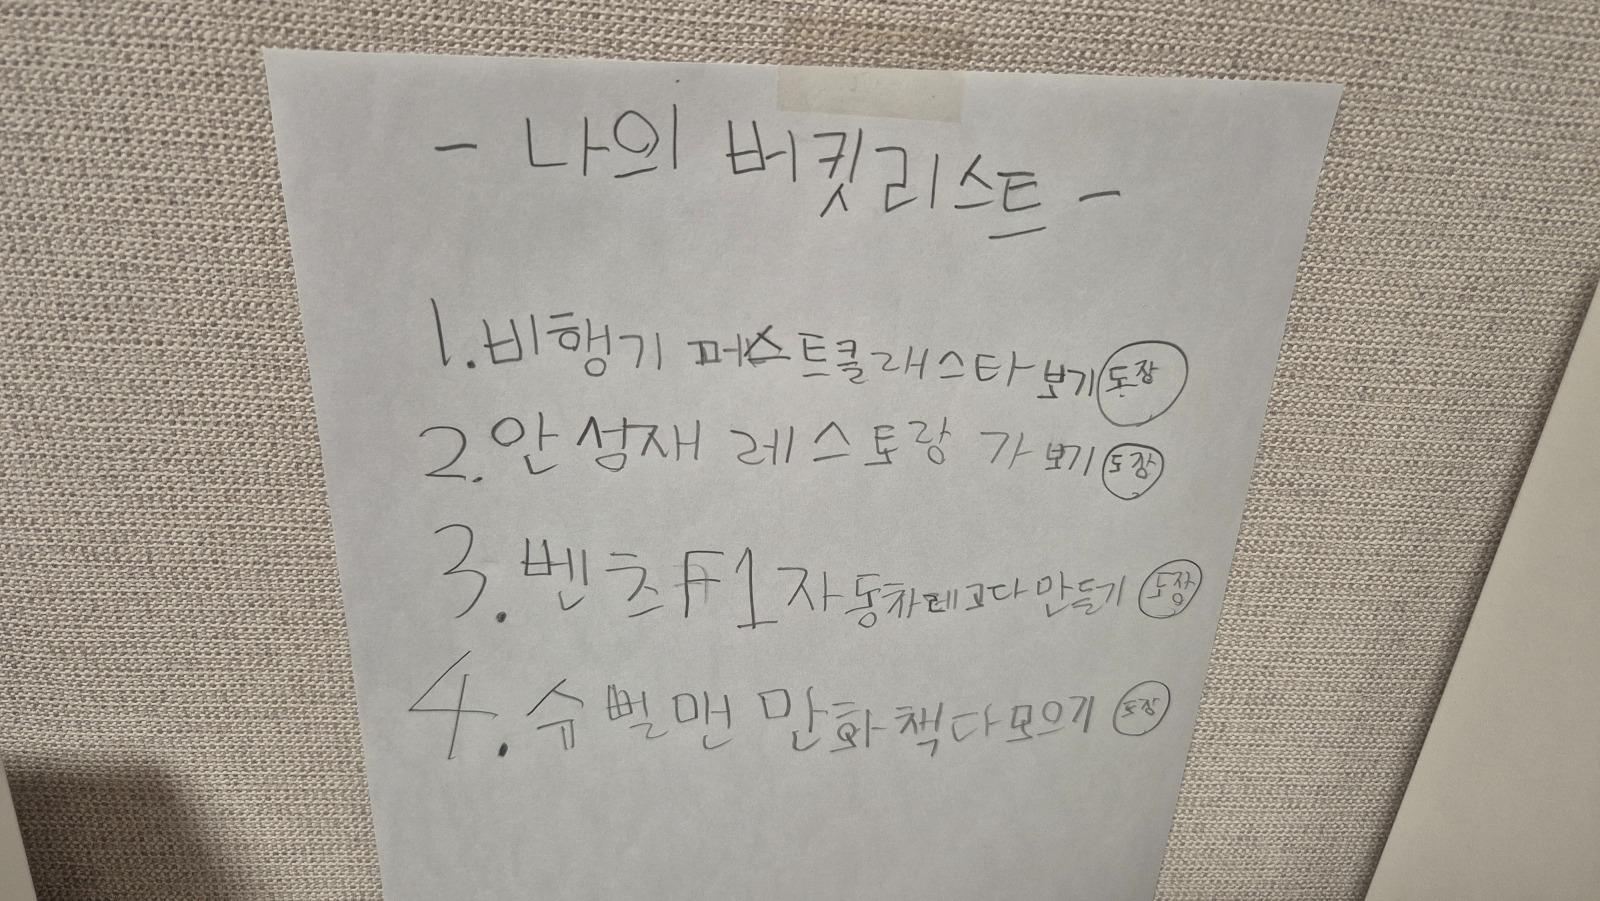 - 나의 버킷리스트 -
1. 비행기 퍼스트클래스타 보기 도장
2. 안성재 레스토랑 가 보기 도장
3. 벤츠 F1 자동차레고다 만들기 도장
4. 슈벌맨 만화책다 모으기 도장